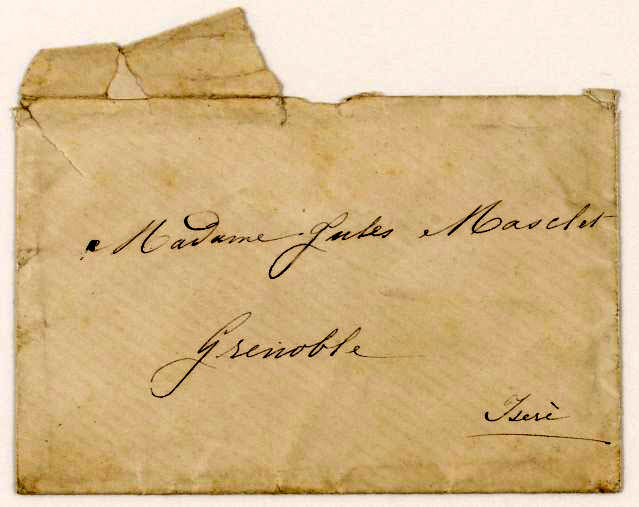 Madame Jules Masclet
Grenoble
Iserè